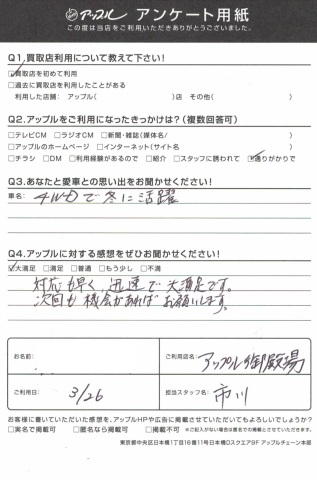 アップル アンケート用紙
この度は当店をご利用いただきありがとうございました。
Q1.買取店利用について教えて下さい!
☑買取店を初めて利用
□過去に買取店を利用したことがある
利用した店舗: アップル( )店 その他( )
Q2.アップルをご利用になったきっかけは?(複数回答可)
□テレビCM □ラジオCM □新聞・雑誌(媒体名/ )
□アップルのホームページ □インターネット(サイト名 )
□チラシ □DM □利用経験があるので □紹介 □スタッフに誘われて ☑通りがかりで
Q3.あなたと愛車との思い出をお聞かせください!
車名:
4WDで冬に活躍
Q4.アップルに対する感想をぜひお聞かせください!
☑大満足 □満足 □普通 □もう少し □不満
対応も早く、迅速で大満足です。
次回も機会があればお願いします。
お名前:
ご利用店名: アップル御殿場
ご利用日: 3/26
担当スタッフ名: 市川
お客様に書いていただいた感想を、アップルHPや広告に掲載させていただいてもよろしいでしょうか?
□実名で掲載可 □匿名なら掲載可 □掲載不可 ※ご記入がない場合は匿名での掲載とさせていただきます。
東京都中央区日本橋1丁目16番11号日本橋Dスクエア9F アップルチェーン本部